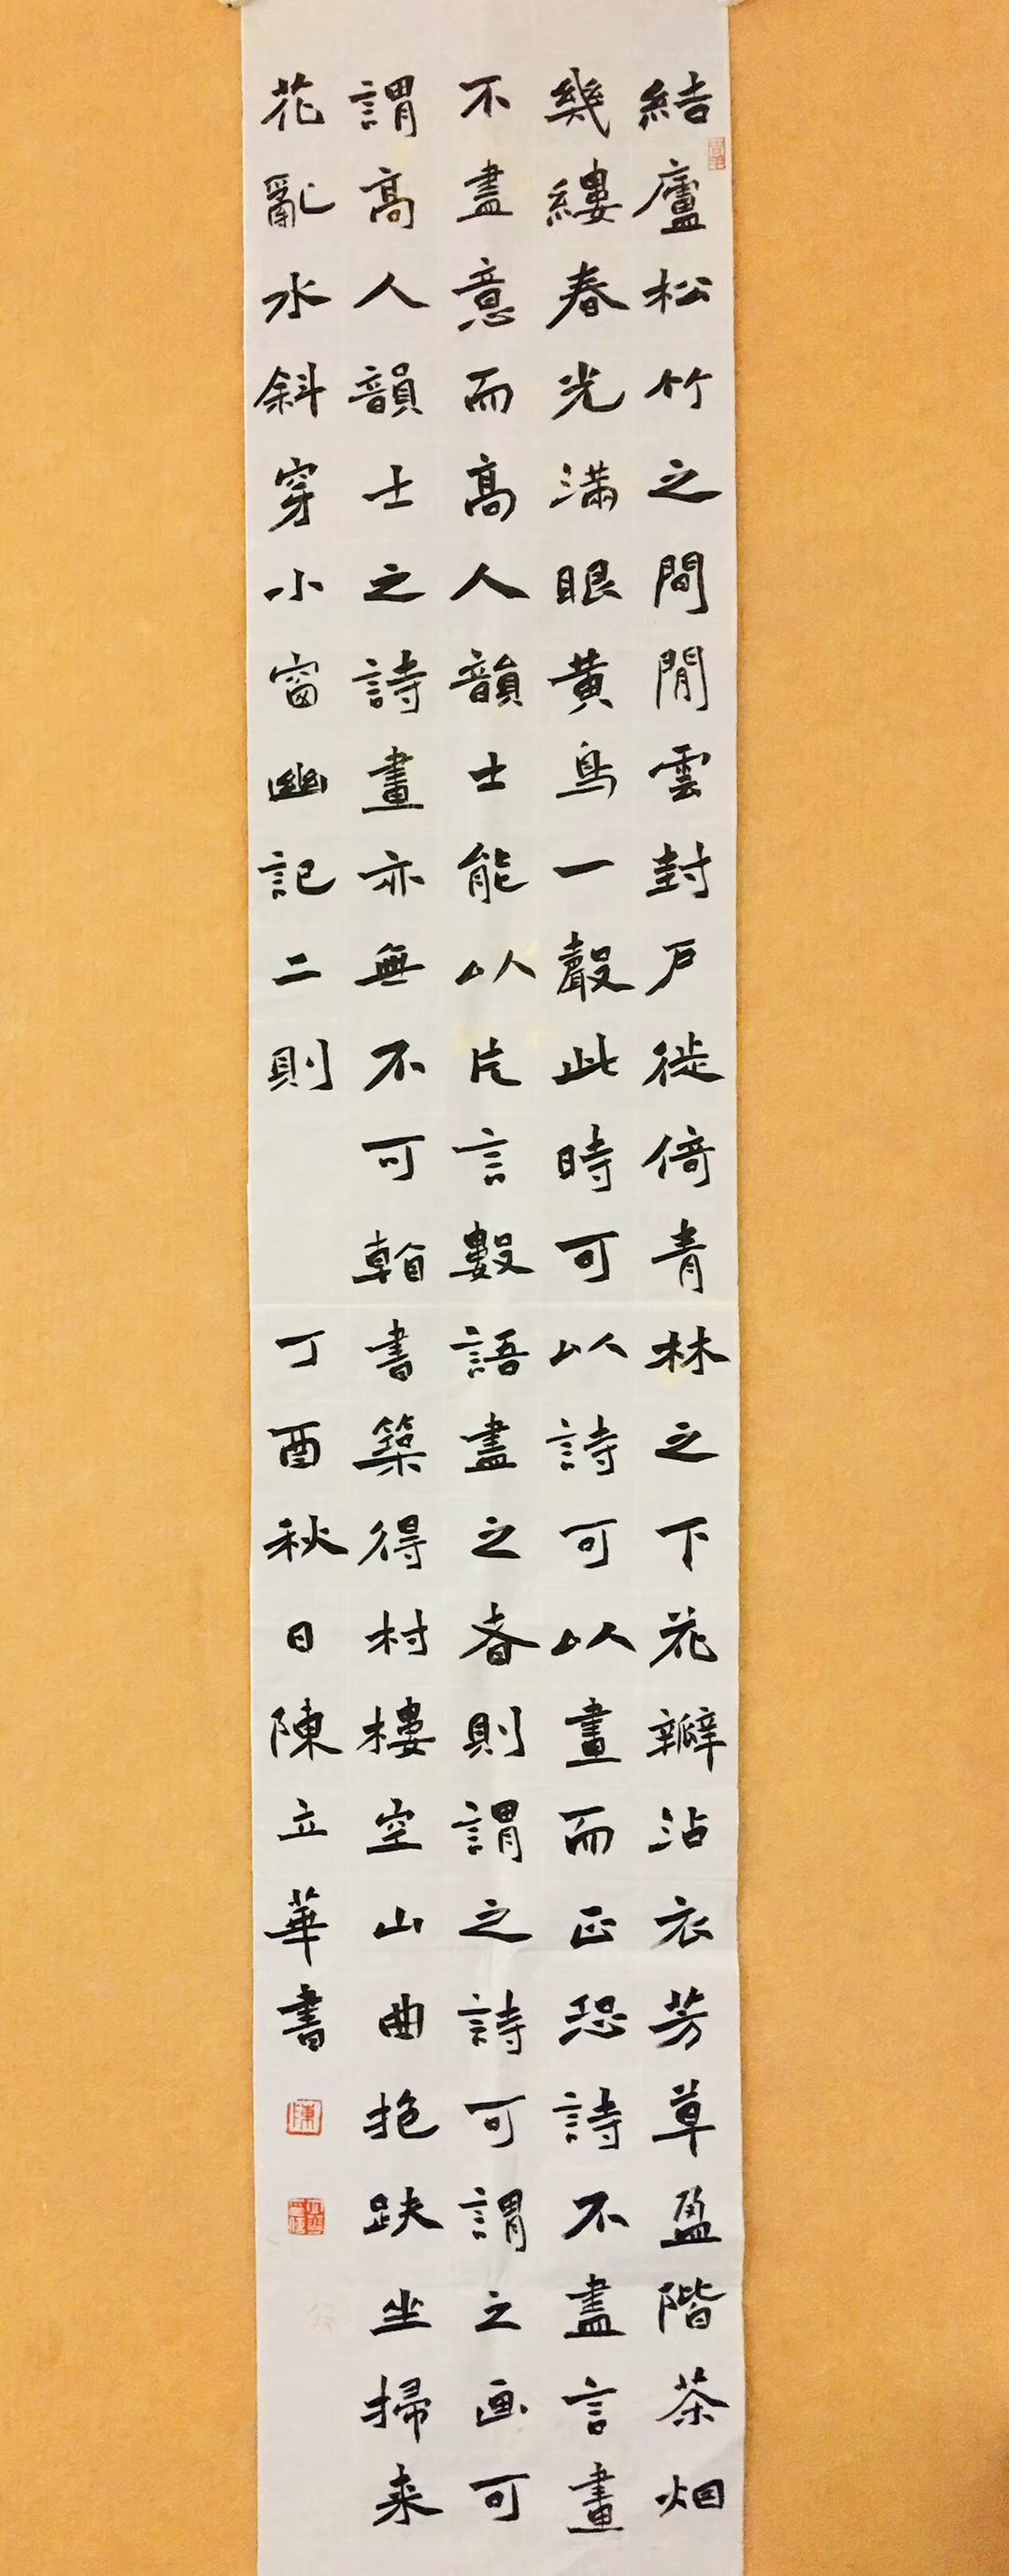 結廬松竹之間閒雲封戶徙倚青林之下花瓣沾衣芳草盈階茶烟
幾縷春光滿眼黃鳥一聲此時可以詩可以畫而正恐詩不盡言畫
不盡意而高人韻士能以片言數語盡之者則謂之詩可謂之画可
謂高人韻士之詩畫亦無不可書築得村樓空山曲抱趺坐掃来
花亂水斜穿小窗幽記二則 丁酉秋日陳立華書
陳